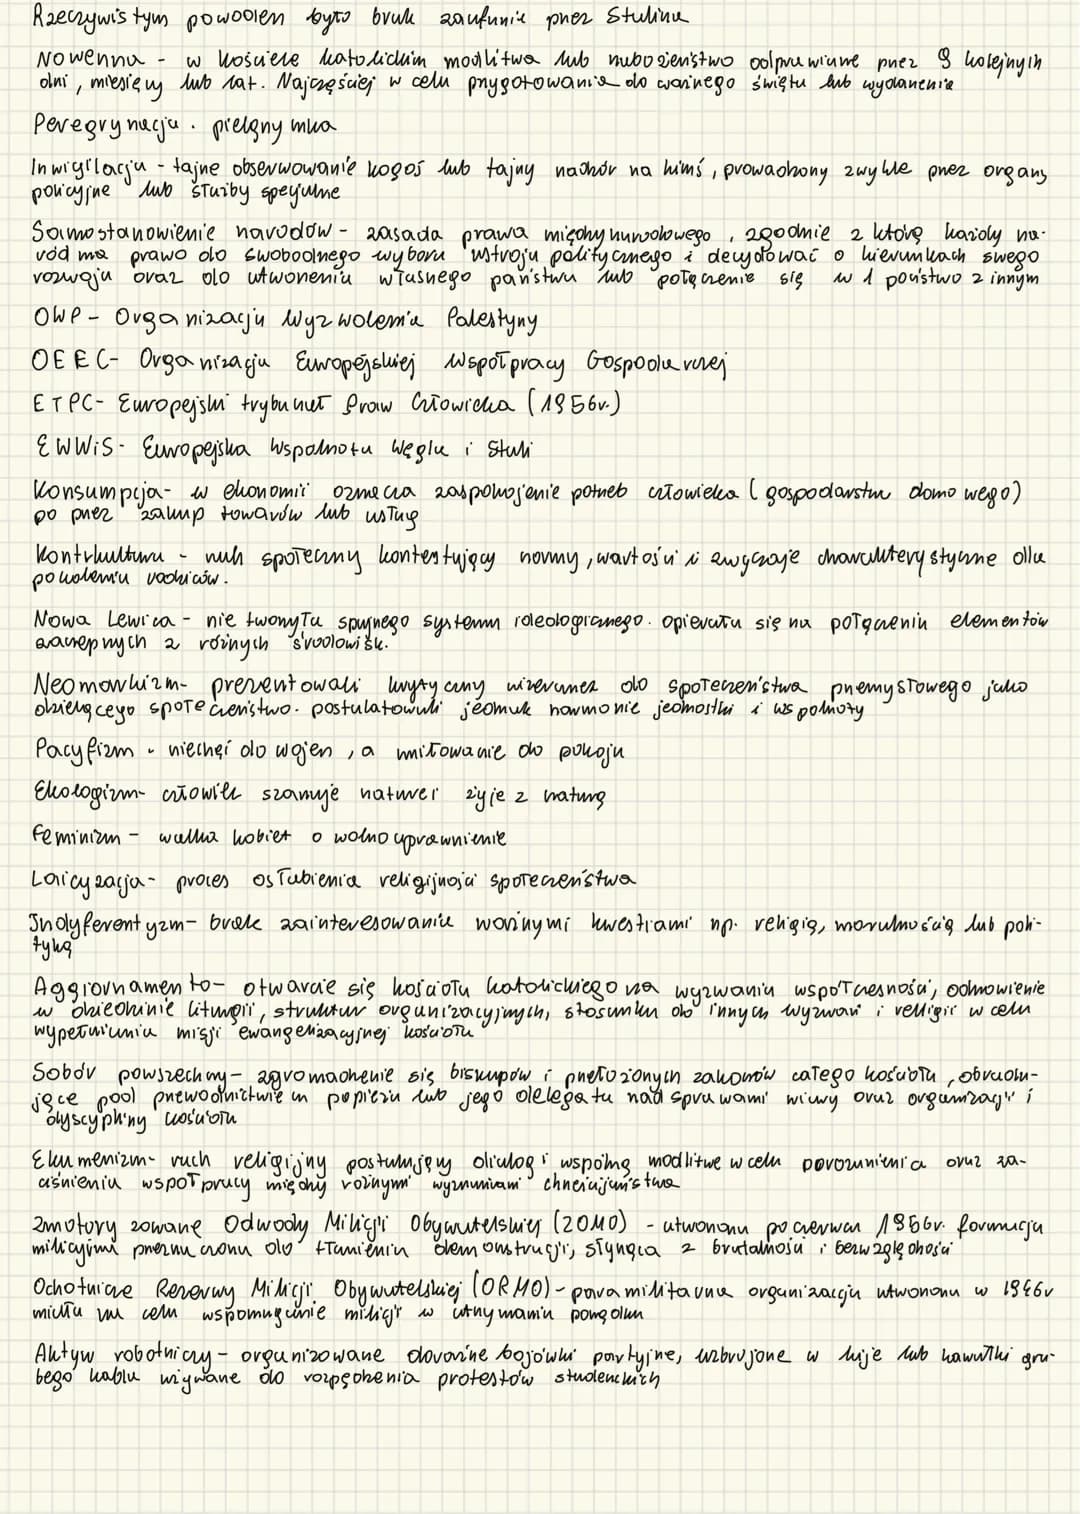 Rzeczywistym powodem było brak zaufania przez Stalina
Nowenna - w kościele katolickim modlitwa lub nabożeństwo odprawiane przez 9 kolejnych
dni, miesięcy lub lat. Najczęściej w celu przygotowania do ważnego święta lub wydarzenia
Peregrynacja - pielgrzymka
Inwigilacja - tajne obserwowanie kogoś lub tajny nadzór na kimś, prowadzony zwykle przez organy
policyjne lub służby specjalne
Samostanowienie narodów - zasada prawa międzynarodowego, zgodnie z którą każdy na-
ród ma prawo do swobodnego wyboru ustroju politycznego i decydować o kierunkach swego
rozwoju oraz do utworzenia własnego państwa lub połączenie się w 1 państwo z innym
OWP - Organizacja Wyzwolenia Palestyny
OEEC - Organizacja Europejskiej Współpracy Gospodarczej
ETPC - Europejski trybunał Praw Człowieka (1956r.)
EWWiS - Europejska Wspólnota Węgla i Stali
Konsumpcja - w ekonomii oznacza zaspokojenie potrzeb człowieka (gospodarstwa domowego)
po przez zakup towarów lub usług
Kontrkultura - ruch społeczny kontestujący normy, wartości i zwyczaje charakterystyczne dla
pokolenia rodziców.
Nowa Lewica - nie tworzyła spójnego systemu ideologicznego. opierała się na połączeniu elementów
zaczerpnych z różnych środowisk.
Neomarkizm - prezentowali krytyczny wizerunek do społeczeństwa przemysłowego jako
dzielącego społeczeństwo. postulatowali jednak harmonie jednostki i wspólnoty
Pacyfizm - niechęć do wojen, a miłowanie do pokoju
Ekologizm - człowiek szanuje nature i żyje z naturą
Feminizm - walka kobiet o wolnouprawnienie
Laicyzacja - proces osłabienia religijności społeczeństwa
Indyferentyzm - brak zainteresowanie ważnymi kwestiami np. religią, moralnością lub poli-
tyką
Aggiornamento - otwarcie się kościoła katolickiego na wyzwania współczesności, odnowienie
w dziedzinie liturgii, struktur organizacyjnych, stosunku do innych wyzwań i religii w celu
wypełnienia misji ewangelizacyjnej kościoła
Sobór powszechny - zgromadzenie się biskupów i przełożonych zakonów całego kościoła, obradu-
jące pod przewodnictwiem papieża lub jego delegata nad sprawami wiary oraz organizacji i
dyscypliny kościoła
Ekumenizm - ruch religijny postulujący dialog i wspólną modlitwe w celu porozumienia oraz za-
cieśnieniu współpracy między różnymi wyznaniami chrześcijaństwa
Zmotoryzowane Odwody Milicji Obywatelskiej (ZOMO) - utworzona po czerwcu 1956r. formacja
milicyjna przeznaczona do tłamienia demonstracji, słynąca z brutalności i bezwzględności
Ochotnicze Rezerwy Milicji Obywatelskiej (ORMO) - paramilitarna organizacja utworzona w 1946r
miała na celu wspomaganie milicji w utrzymaniu porządku
Aktyw robotniczy - organizowane doraźne bojówki partyjne, uzbrojone w kije lub kawałki gru-
bego kabla używane do rozpędzenia protestów studenckich